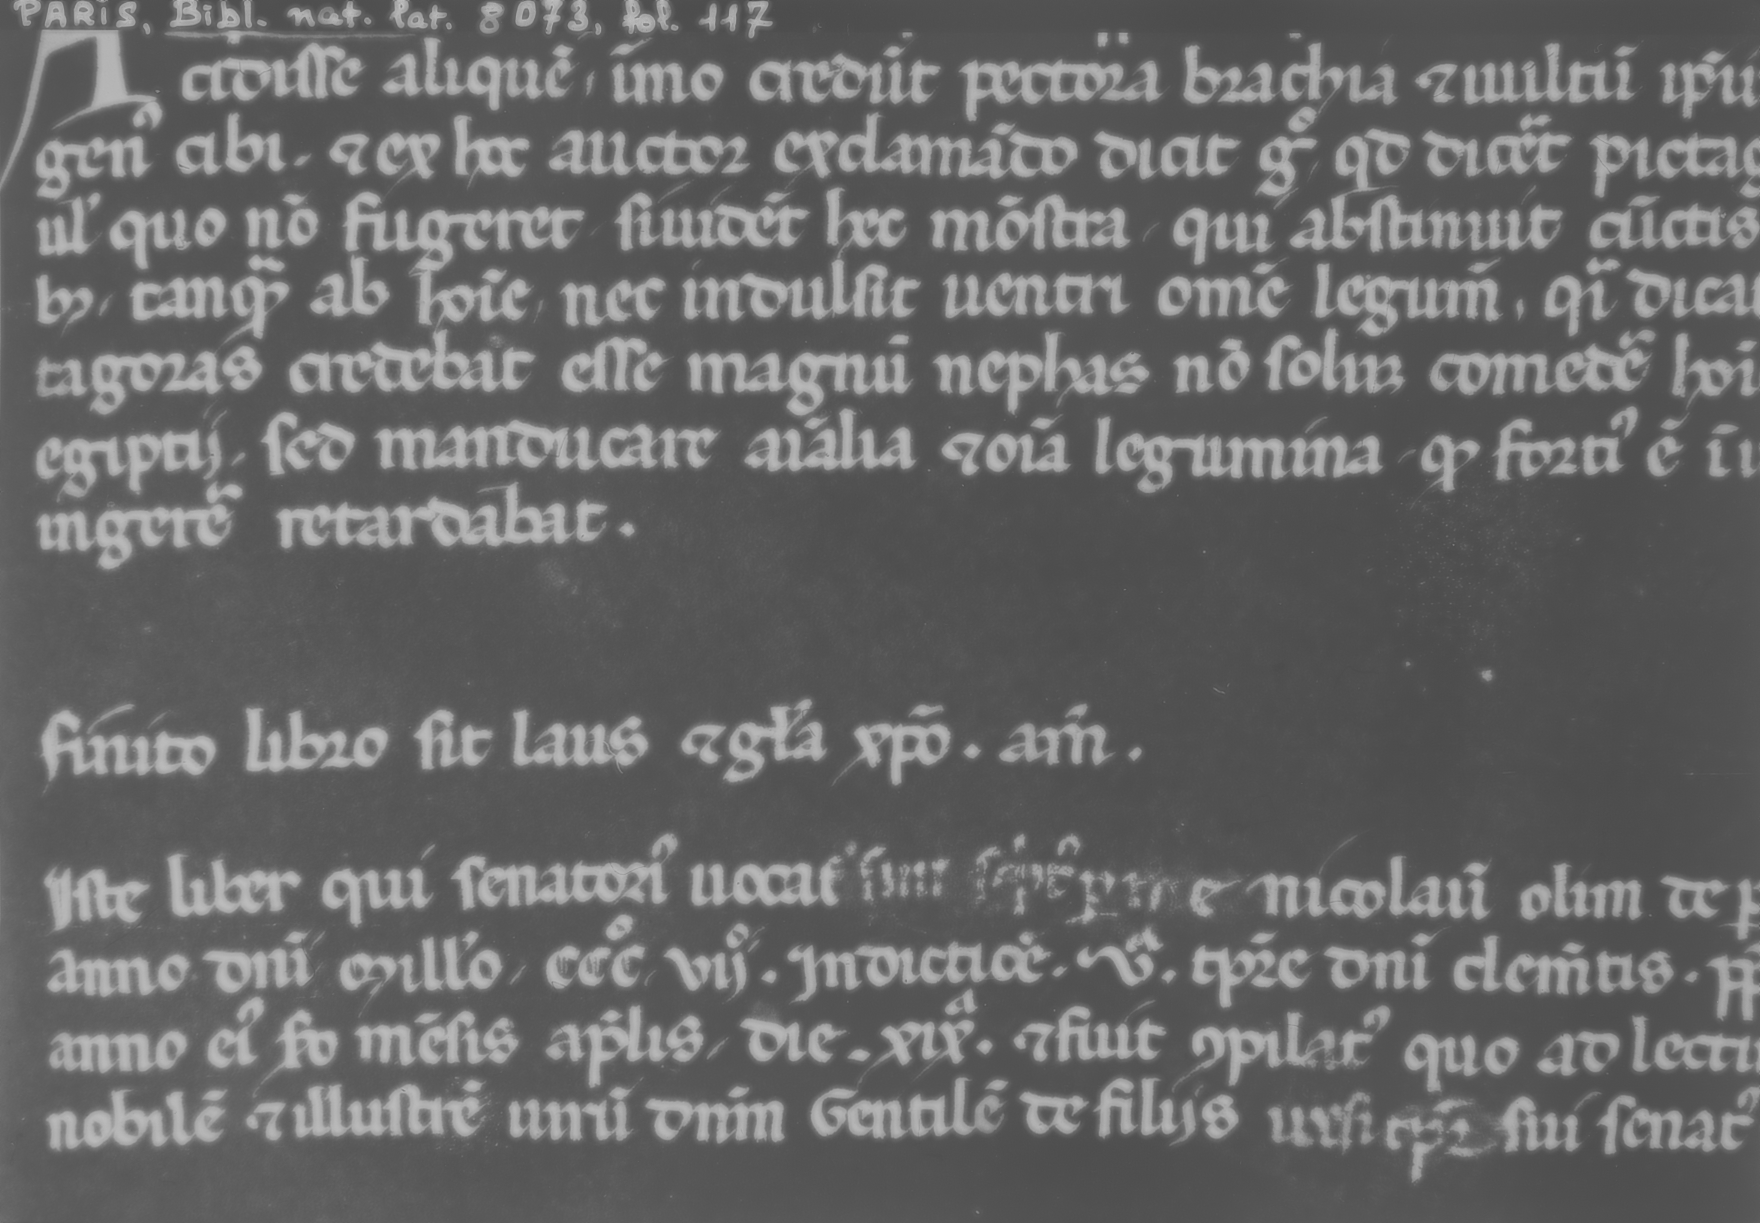 PARIS, Bibl. nat. lat. 8073, fol. 117
A cidisse aliquē, īmo crediīt pectora brachia ⁊ uultū ip̄iu
gen᾽ cibi. ⁊ ex hoc auctor exclamādo dicit gͦ qd dicēt pictag
ul᾽ quo nō fugeret siuidēt hec mōstra, qui abstinuit cūctis
bꝫ, tanq̄ ab hoīe, nec indulsit uentri omē legum̄, qī dicat
tagoras credebat esse magnū nephas nō soluꝫ comedē hoi
egiptij. sed manducare aīalia ⁊ oīa legumina qꝫ forti᾽ ē
ingerē retardabat.
finito libro sit laus ⁊ gl̄a xp̄o. am̄.
Iste liber qui senatori᾽ uocat᾽ nicolaū olim de p
anno dn̄i millo, cccͦ vijͦ. Indictiōe. vᵗᵃ. tp̄re dn̄i clem̄tis. pp
anno ei᾽ sc̄do mēsis ap̄lis, die. xixᵃ. ⁊ fuit ꝯpilat᾽ quo ad lectu
nobilē ⁊ illustrē uirū dn̄m Gentilē de filijs ursi tp̄r sui senat᾽